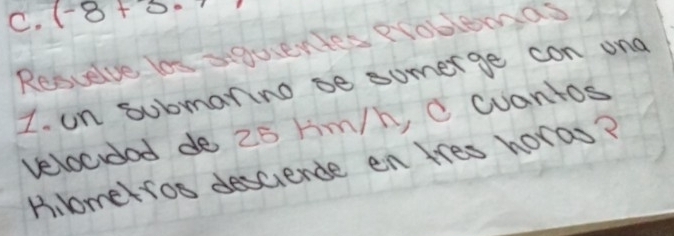 C. (-8+3.
Resuelve los siguientes problemas
1. un submarino se sumerge con una
velocidad de 25 km/h, c cuantos
Kilometros desciende en tres horas?